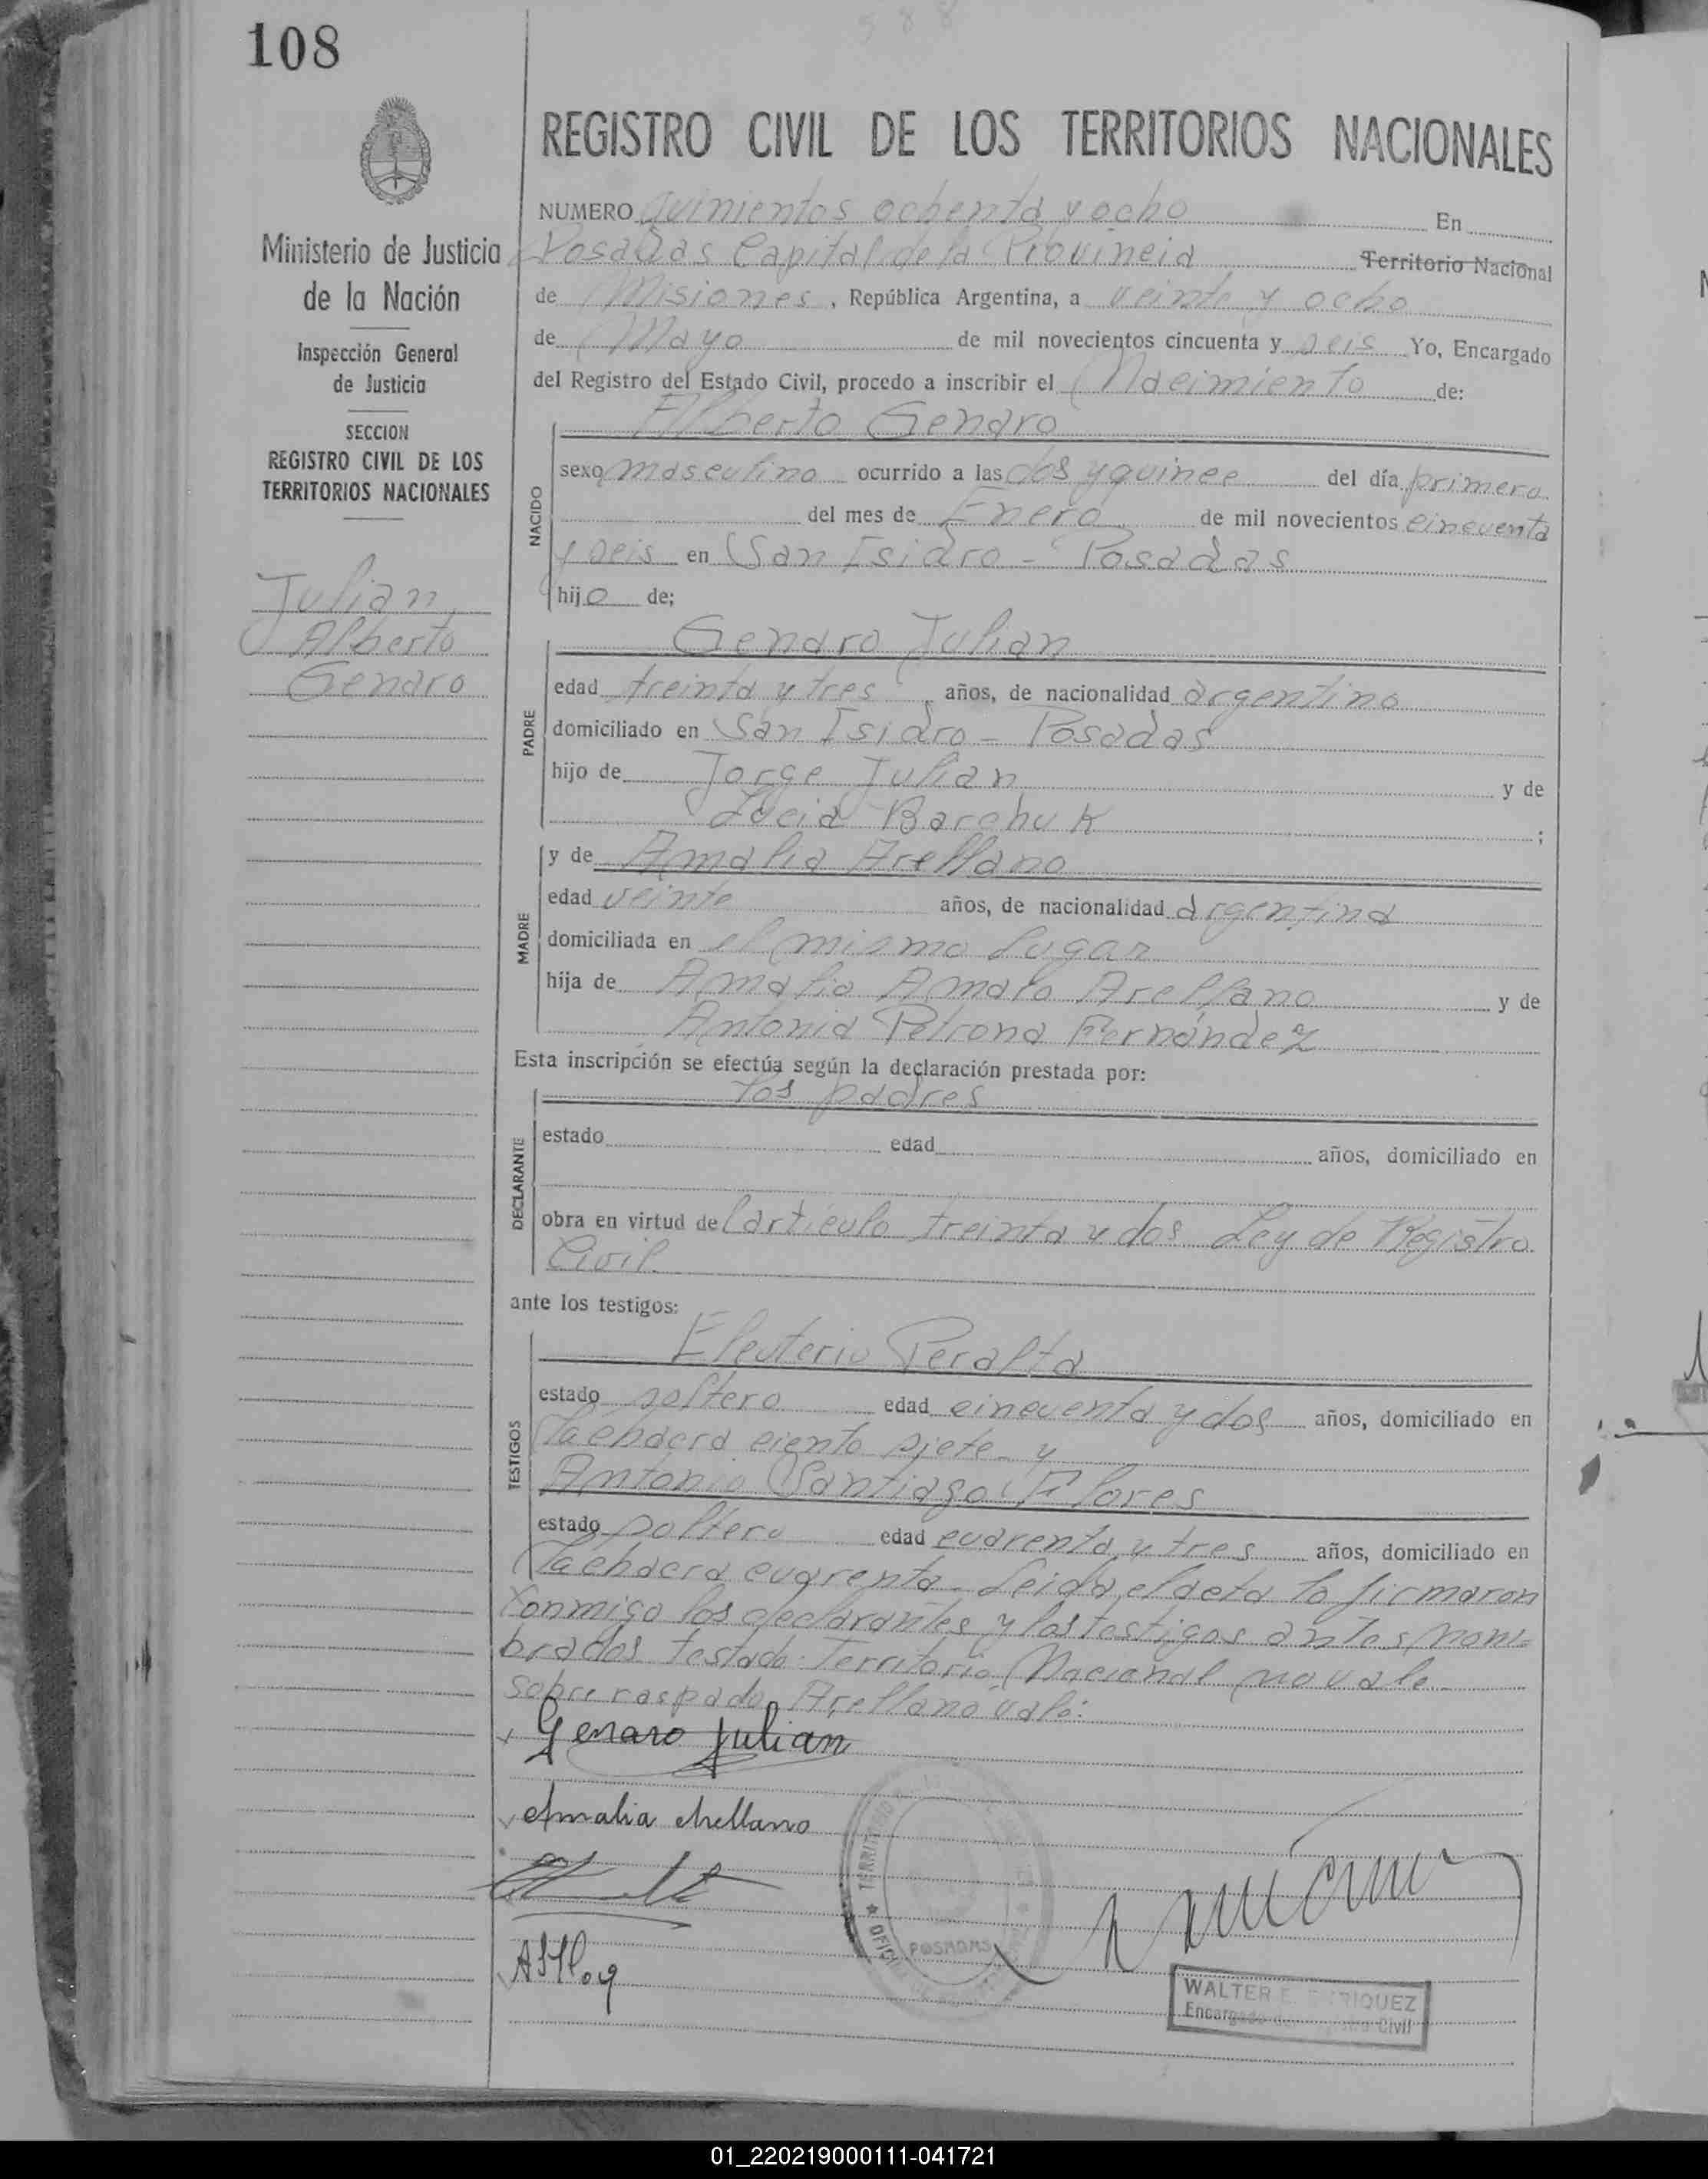 588
108
REGISTRO CIVIL DE LOS TERRITORIOS NACIONALES
Ministerio de Justicia
de la Nación
Inspección General
de Justicia
SECCION
REGISTRO CIVIL DE LOS
TERRITORIOS NACIONALES
Julian,
Alberto
Genaro
NUMERO quinientos ochenta y ocho En
Posadas Capital de la Provincia Territorio Nacional
de Misiones, República Argentina, a veinte y ocho
de Mayo de mil novecientos cincuenta y seis Yo, Encargado
del Registro del Estado Civil, procedo a inscribir el Nacimiento de:
Alberto Genaro
NACIDO
sexo masculino ocurrido a las dos y quince del día primero
del mes de Enero de mil novecientos cincuenta
y seis en San Isidro - Posadas
hijo de;
Genaro Julian
PADRE
edad treinta y tres, años, de nacionalidad argentino
domiciliado en San Isidro - Posadas
hijo de Jorge Julian y de
Lucia Barchuk ;
y de Amalia Arellano
MADRE
edad veinte años, de nacionalidad argentina
domiciliada en el mismo lugar
hija de Amalio Amaro Arellano y de
Antonia Petrona Fernández
Esta inscripción se efectúa según la declaración prestada por:
los padres
DECLARANTE
estado edad años, domiciliado en
obra en virtud del artículo treinta y dos Ley de Registro
Civil
ante los testigos:
Eleuterio Peralta
TESTIGOS
estado soltero edad cincuenta y dos años, domiciliado en
Tachaera ciento siete y
Antonio Santiago Flores
estado soltero edad cuarenta y tres años, domiciliado en
Tachaera cuarenta - Leida el acta la firmaron
conmigo los declarantes y los testigos antes nom-
brados testado: Territorio Nacional no vale -
sobre raspado Arellano vale:
Genaro Julian
Amalia Arellano
TERRITORIO
POSADAS
WALTER E. ENRIQUEZ
Encargado del Registro Civil
01_220219000111-041721